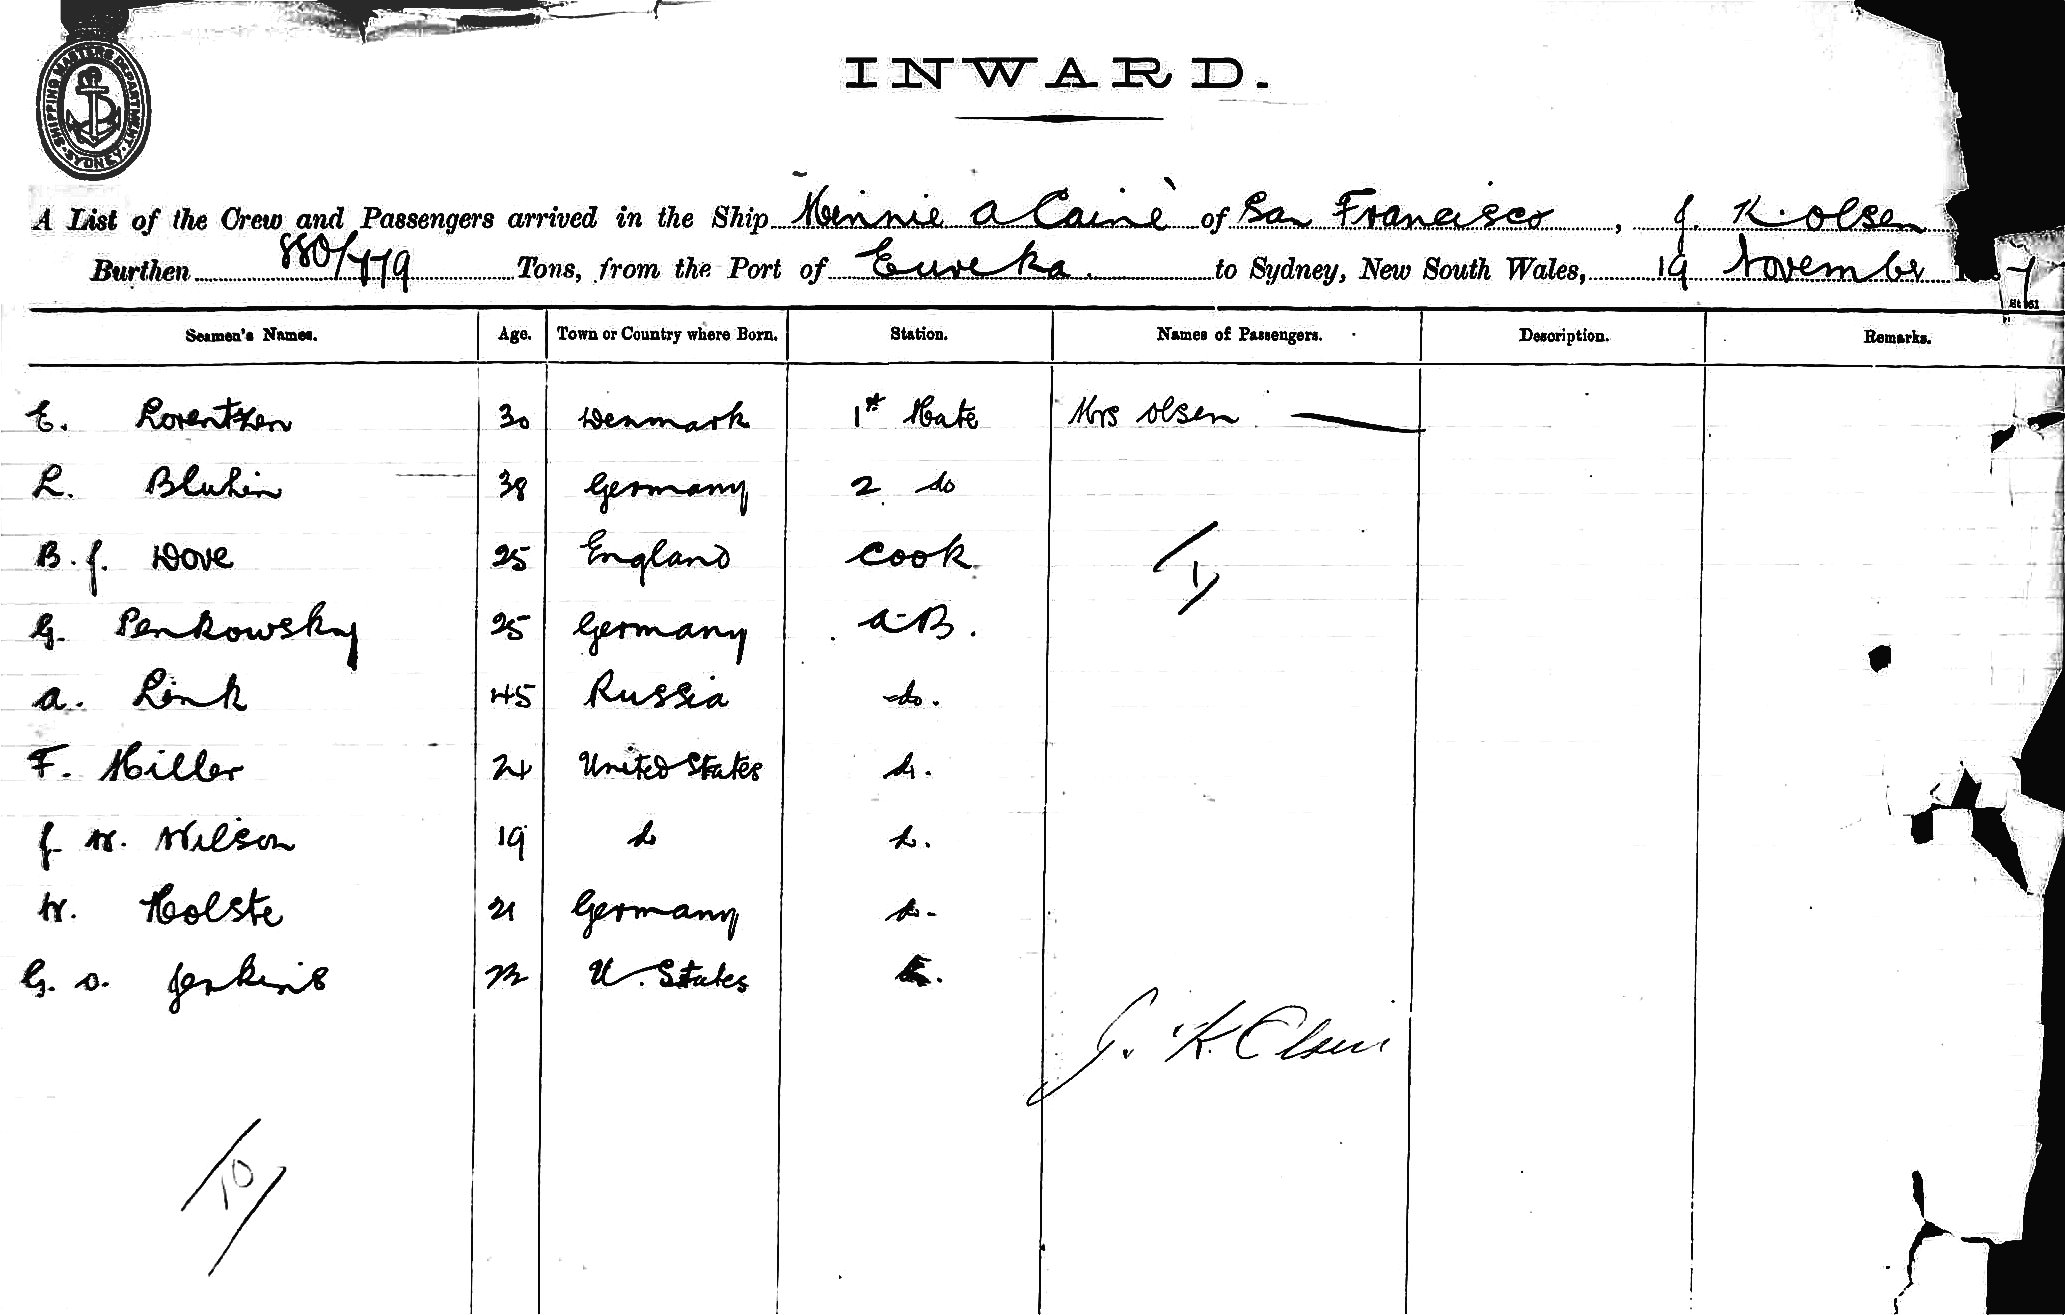 SHIPPING MASTERS DEPARTMENT SYDNEY
INWARD.
A List of the Crew and Passengers arrived in the Ship Minnie A Caine of San Francisco, J. K. Olsen
Burthen 880/779 Tons, from the Port of Eureka. to Sydney, New South Wales, 19 November 7
Seamen's Names. Age. Town or Country where Born. Station. Names of Passengers. Description. Remarks.
E. Lorentzen 30 Denmark 1st Mate Mrs Olsen
L. Bluhin 38 Germany 2 do
B. J. Dove 25 England Cook 1
G. Penkowsky 25 Germany A-B.
A. Link 45 Russia do.
F. Miller 24 United States do.
J W. Wilson 19 do do.
W. Holste 21 Germany do-
G. O. Jenkins U. States
J. K. Olsen
10